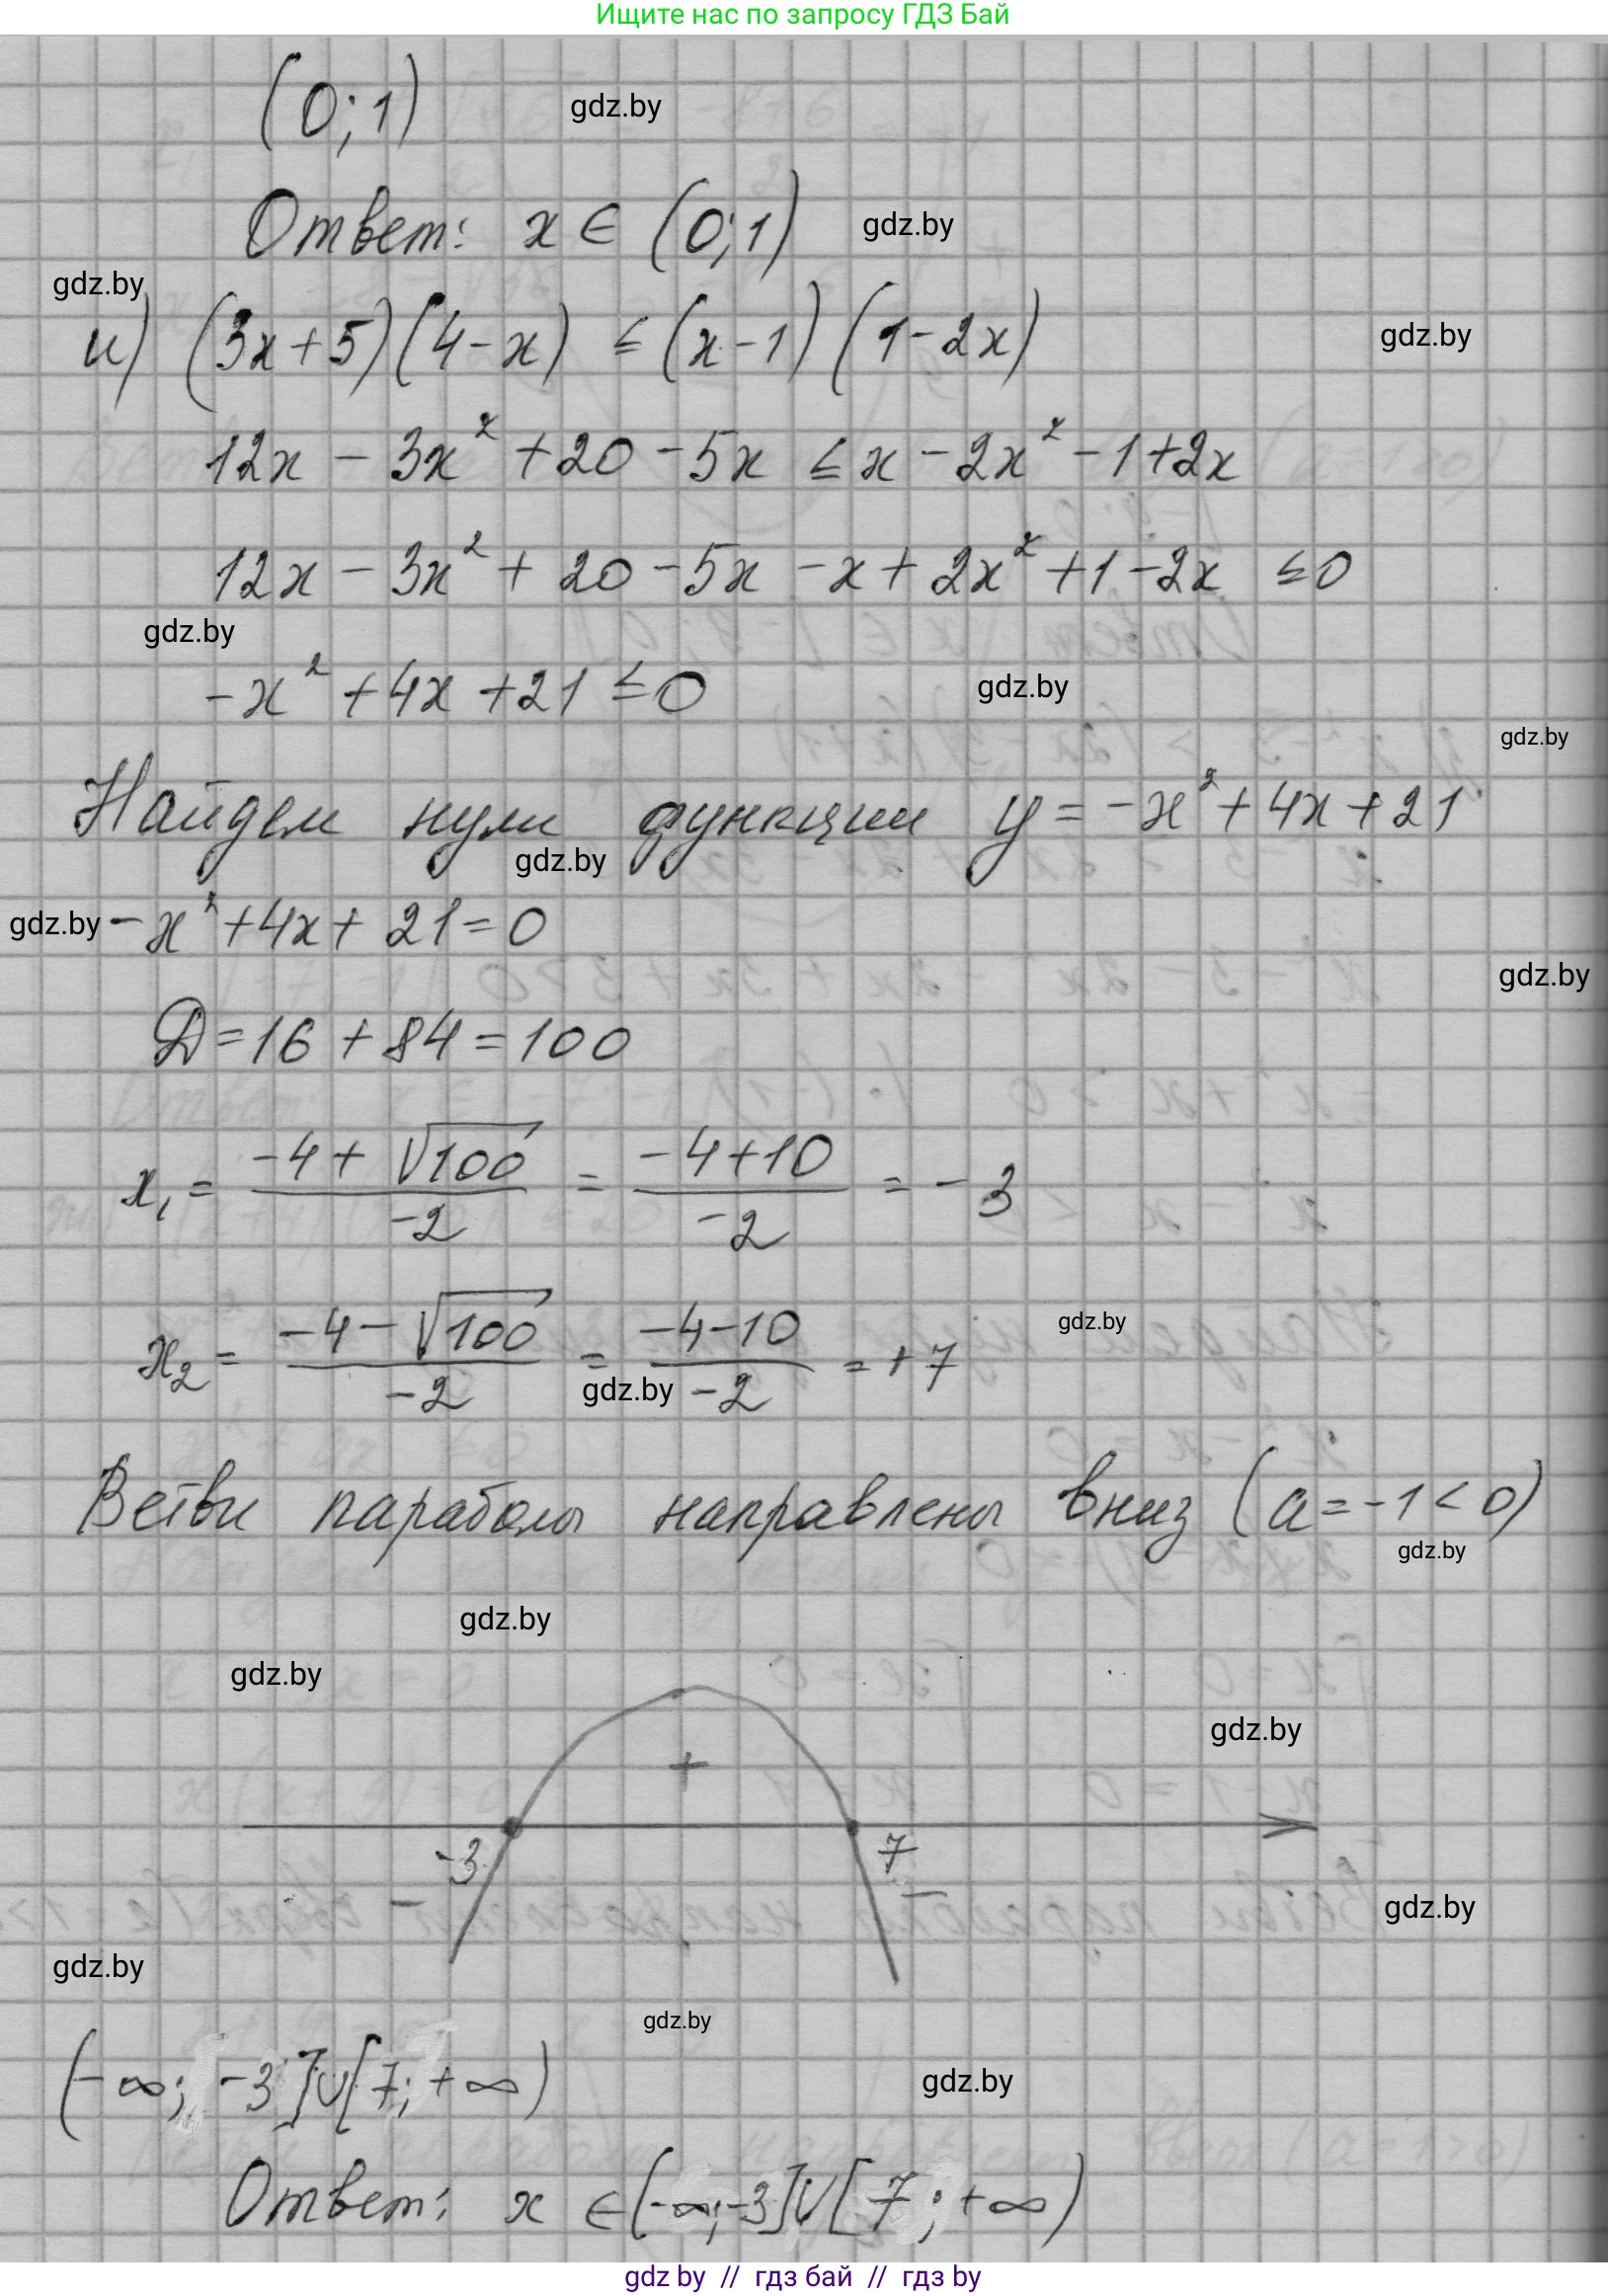 Ищите нас по запросу ГДЗ Бай
(0; 1)
gdz.by
Ответ: x ∈ (0; 1)
gdz.by
gdz.by
и) (3x+5)(4-x) ≤ (x-1)(1-2x)
gdz.by
12x - 3x² + 20 - 5x ≤ x - 2x² - 1 + 2x
12x - 3x² + 20 - 5x - x + 2x² + 1 - 2x ≤ 0
gdz.by
-x² + 4x + 21 ≤ 0
gdz.by
gdz.by
Найдем нули функции y = -x² + 4x + 21
gdz.by
gdz.by
-x² + 4x + 21 = 0
gdz.by
D = 16 + 84 = 100
x₁ = (-4 + √100)/(-2) = (-4+10)/(-2) = -3
gdz.by
x₂ = (-4 - √100)/(-2) = (-4-10)/(-2) = +7
gdz.by
Ветви параболы направлены вниз (a = -1 < 0)
gdz.by
gdz.by
gdz.by
gdz.by
+
-3
7
-
-
gdz.by
gdz.by
gdz.by
(-∞; -3]∪[7; +∞)
gdz.by
Ответ: x ∈ (-∞; -3]∪[7; +∞)
gdz by // гдз бай // гдз by